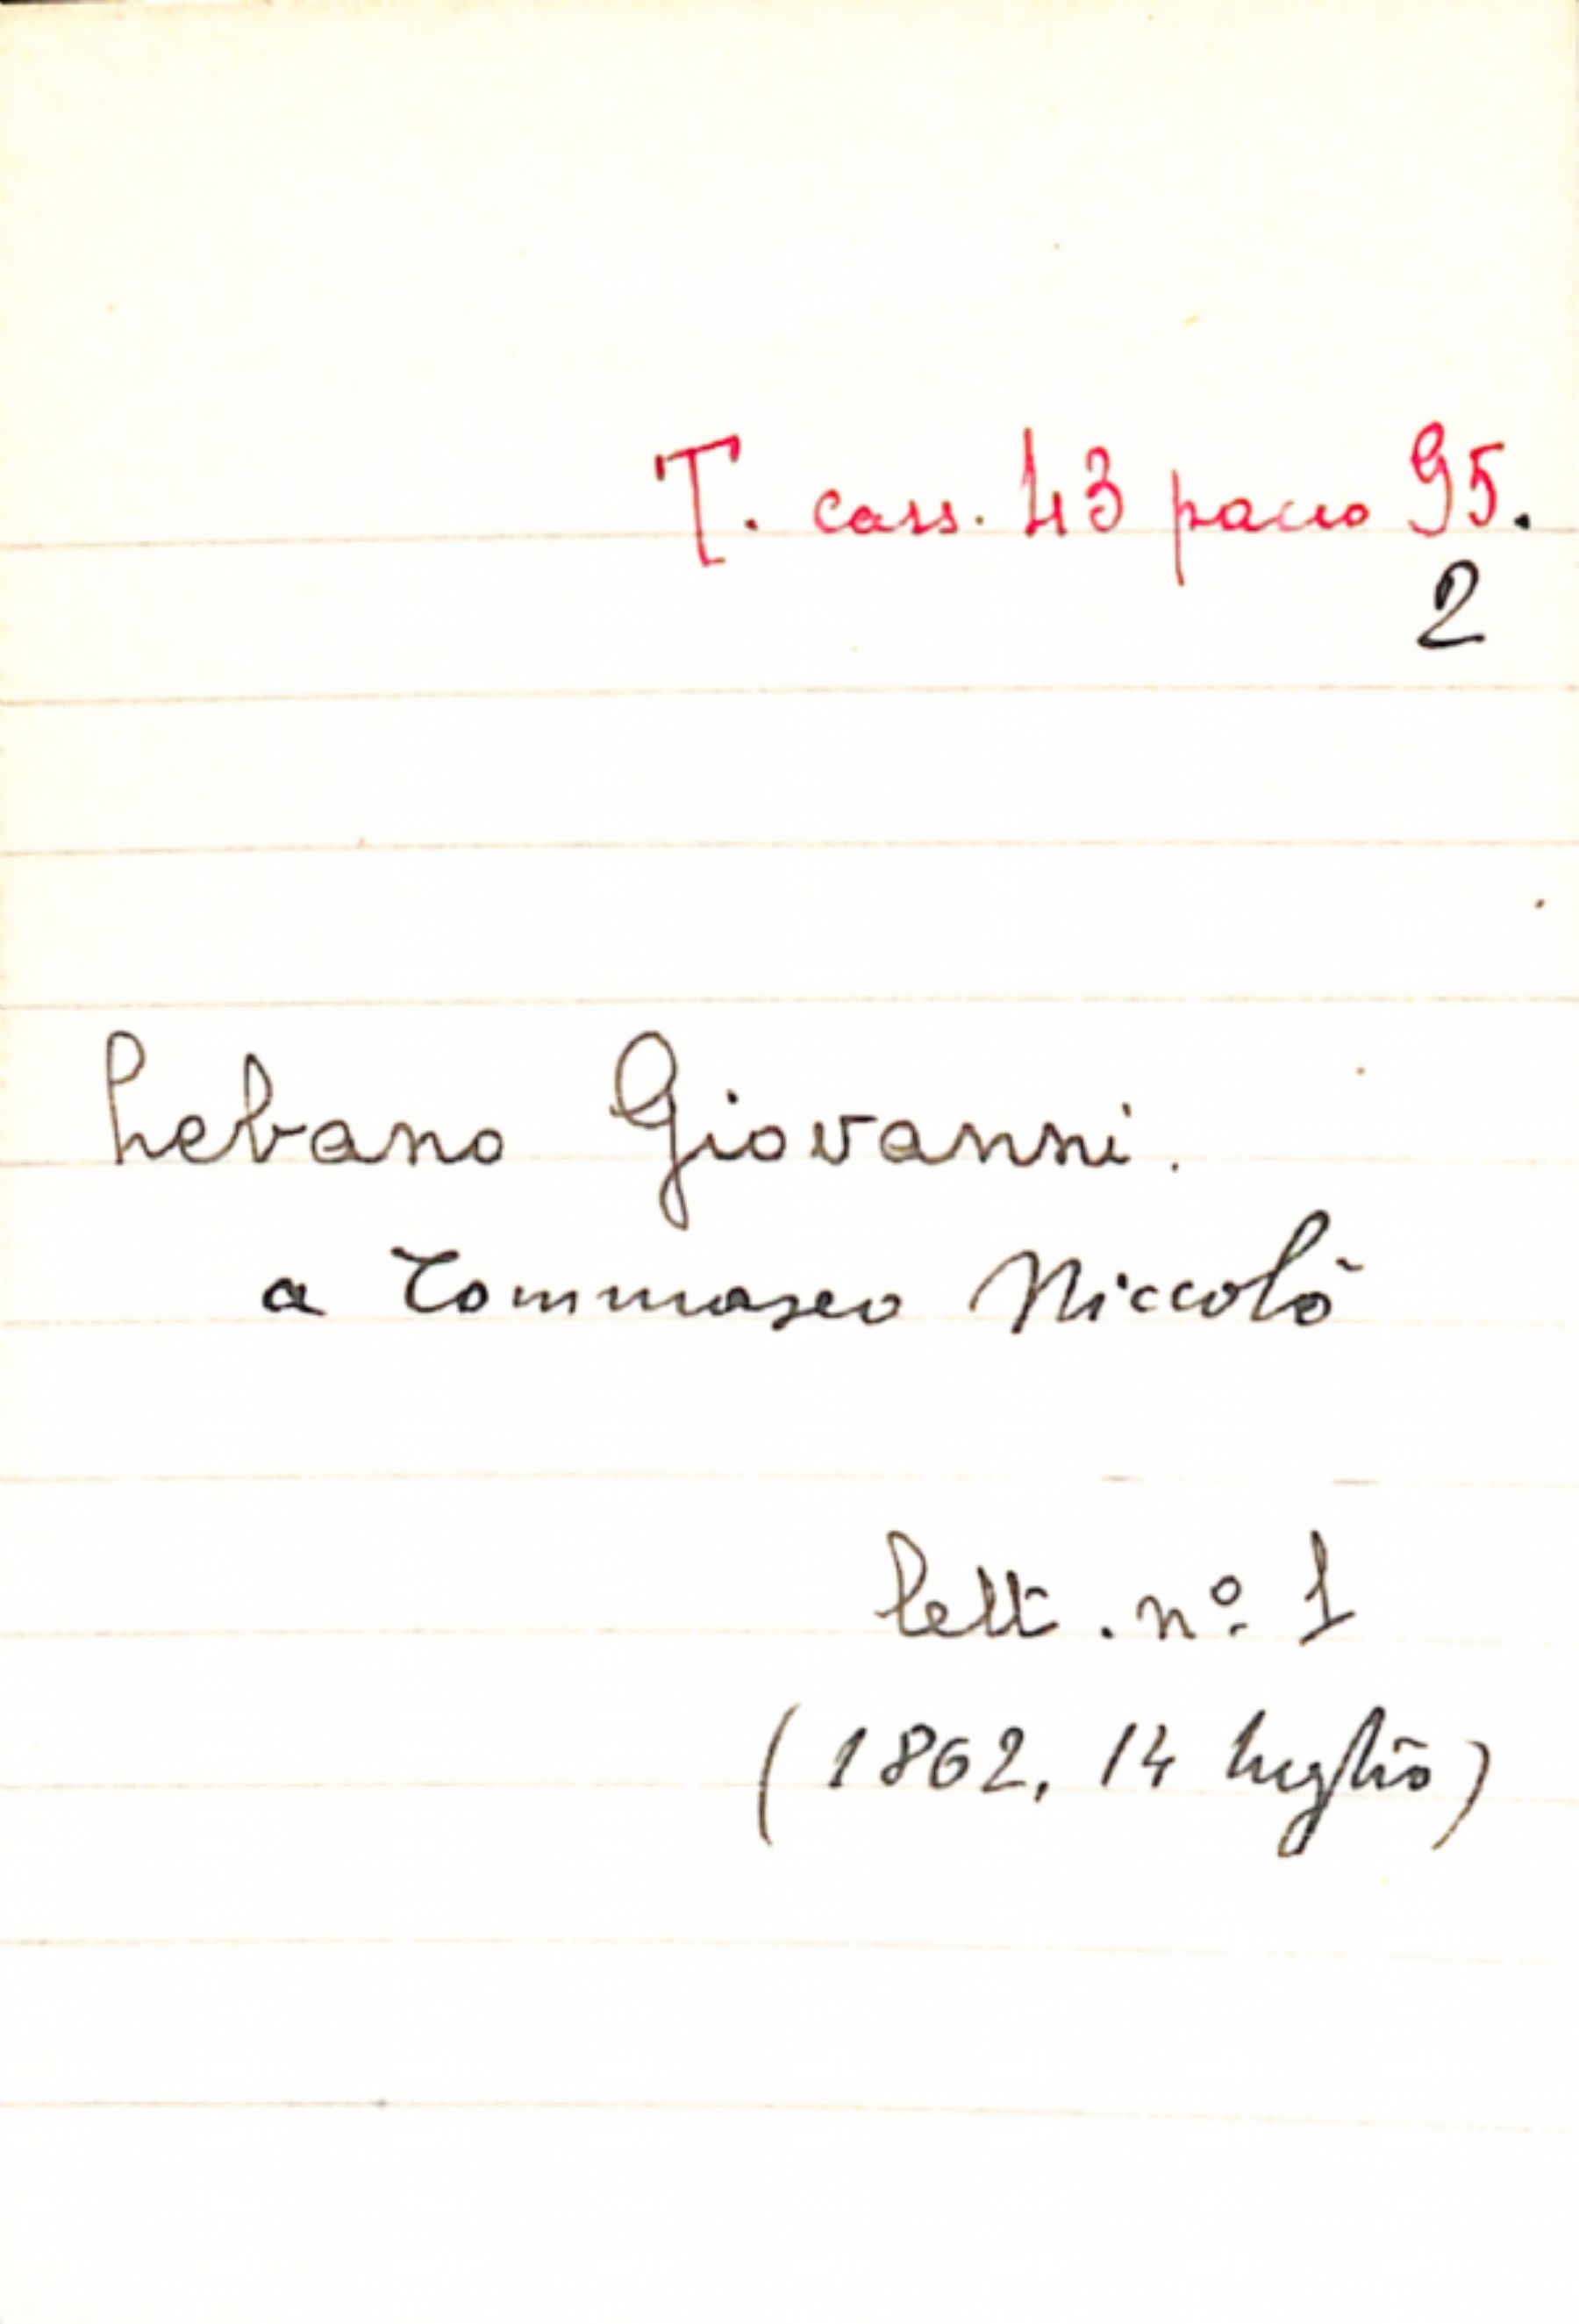 T. cass. 43 pacco 95.
2
Lebano Giovanni.
a Tommaseo Niccolò
lett. nº 1
(1862, 14 luglio)